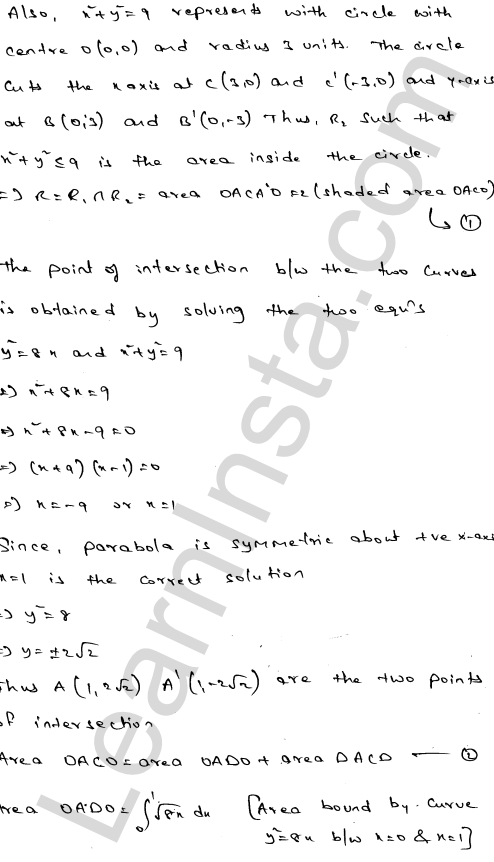 Also, x²+y²=9 represents with circle with
centre O(0,0) and radius 3 units. The circle
cuts the x axis at C(3,0) and C'(-3,0) and y-axis
at B(0,3) and B'(0,-3) Thus, R₂ such that
x²+y²≤9 is the area inside the circle.
=> R=R₁∩R₂= area OACA'O =2(shaded area OACO)
↳ ①
The point of intersection b/w the two curves
is obtained by solving the two equ's
y²=8x and x²+y²=9
=> x²+8x=9
=> x²+8x-9=0
=> (x+9)(x-1)=0
=> x=-9 or x=1
Since, parabola is symmetric about +ve x-axis
x=1 is the correct solution
=> y²=8
=> y=±2√2
Thus A(1,2√2) A'(1,-2√2) are the two points
of intersection
Area OACO=area OADO+area DACD — ②
Area OADO=∫₀¹√8x dx [Area bound by curve
y²=8x b/w x=0 & x=1]
LearnInsta.com